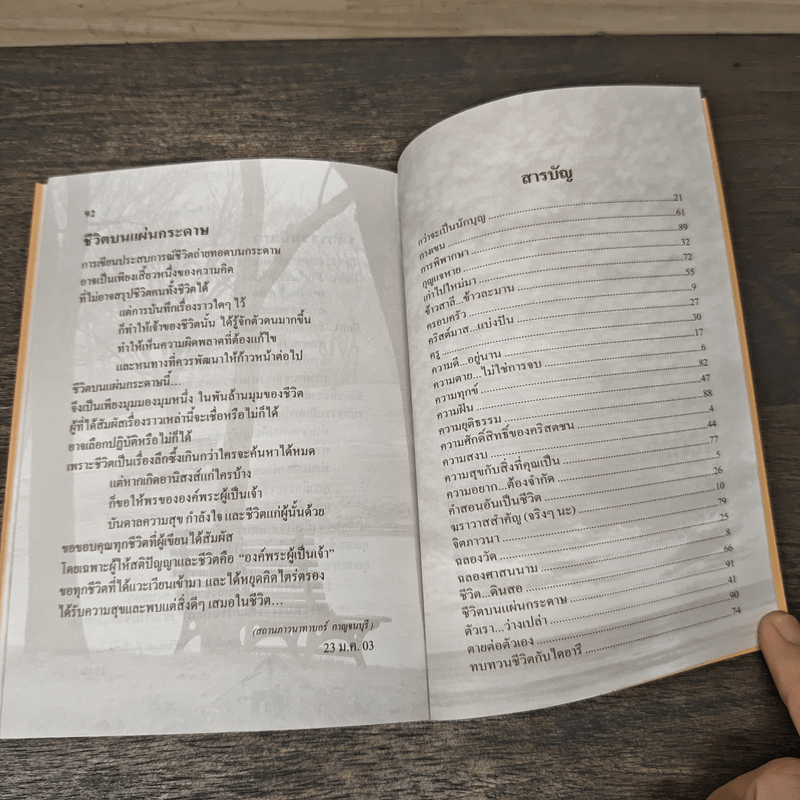 92
ชีวิตบนแผ่นกระดาษ
การเขียนประสบการณ์ชีวิตถ่ายทอดบนกระดาษ
อาจเป็นเพียงเสี้ยวหนึ่งของความคิด
ที่ไม่อาจสรุปชีวิตคนทั้งชีวิตได้
แต่การบันทึกเรื่องราวใดๆ ไว้
ก็ทำให้เจ้าของชีวิตนั้น ได้รู้จักตัวตนมากขึ้น
ทำให้เห็นความผิดพลาดที่ต้องแก้ไข
และหนทางที่ควรพัฒนาให้ก้าวหน้าต่อไป
ชีวิตบนแผ่นกระดาษนี้...
จึงเป็นเพียงมุมมองมุมหนึ่ง ในพันล้านมุมของชีวิต
ผู้ที่ได้สัมผัสเรื่องราวเหล่านี้จะเชื่อหรือไม่ก็ได้
อาจเลือกปฏิบัติหรือไม่ก็ได้
เพราะชีวิตเป็นเรื่องลึกซึ้งเกินกว่าใครจะค้นหาได้หมด
แต่หากเกิดอานิสงส์แก่ใครบ้าง
ก็ขอให้พรขององค์พระผู้เป็นเจ้า
บันดาลความสุข กำลังใจ และชีวิตแก่ผู้นั้นด้วย
ขอขอบคุณทุกชีวิตที่ผู้เขียนได้สัมผัส
โดยเฉพาะผู้ให้สติปัญญาและชีวิตคือ “องค์พระผู้เป็นเจ้า”
ขอทุกชีวิตที่ได้แวะเวียนเข้ามา และได้หยุดคิดไตร่ตรอง
ได้รับความสุขและพบแต่สิ่งดีๆ เสมอในชีวิต...
(สถานภาวนาทาบอร์ กาญจนบุรี)
23 ม.ค. 03
สารบัญ
กว่าจะเป็นนักบุญ 21
กางเขน 61
การพิพากษา 89
กุญแจหาย 32
เก่าไปใหม่มา 72
ข้าวสาลี...ข้าวละมาน 55
ครอบครัว 9
คริสต์มาส...แบ่งปัน 27
ครู 30
ความดี...อยู่นาน 17
ความตาย...ไม่ใช่การจบ 6
ความทุกข์ 82
ความฝัน 47
ความยุติธรรม 88
ความศักดิ์สิทธิ์ของคริสตชน 4
ความสงบ 44
ความสุขกับสิ่งที่คุณเป็น 77
ความอยาก...ต้องจำกัด 5
คำสอนอันเป็นชีวิต 26
ฆราวาสสำคัญ (จริงๆ นะ) 10
จิตภาวนา 79
ฉลองวัด 25
ฉลองศาสนนาม 8
ชีวิต...ดินสอ 66
ชีวิตบนแผ่นกระดาษ 91
ตัวเรา...ว่างเปล่า 41
ตายต่อตัวเอง 90
ทบทวนชีวิตกับไดอารี 74